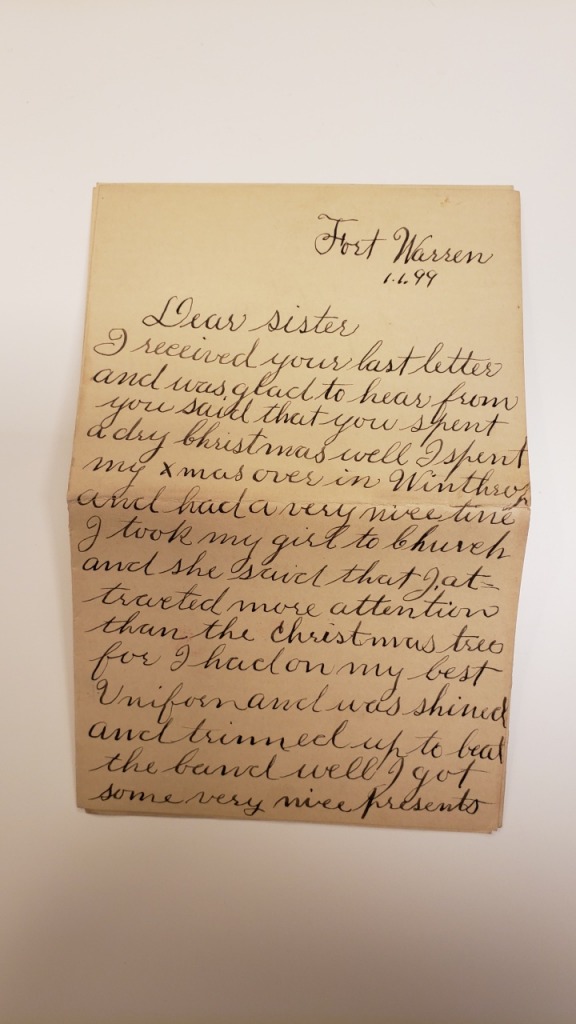 Fort Warren
1.6.99
Dear sister
I received your last letter
and was glad to hear from
you said that you spent
a dry Christmas well I spent
my xmas over in Winthrop
and had a very nice time
I took my girl to Church
and she said that I at-
tracted more attention
than the christmas tree
for I had on my best
Uniform and was shined
and trimmed up to beat
the band well I got
some very nice presents